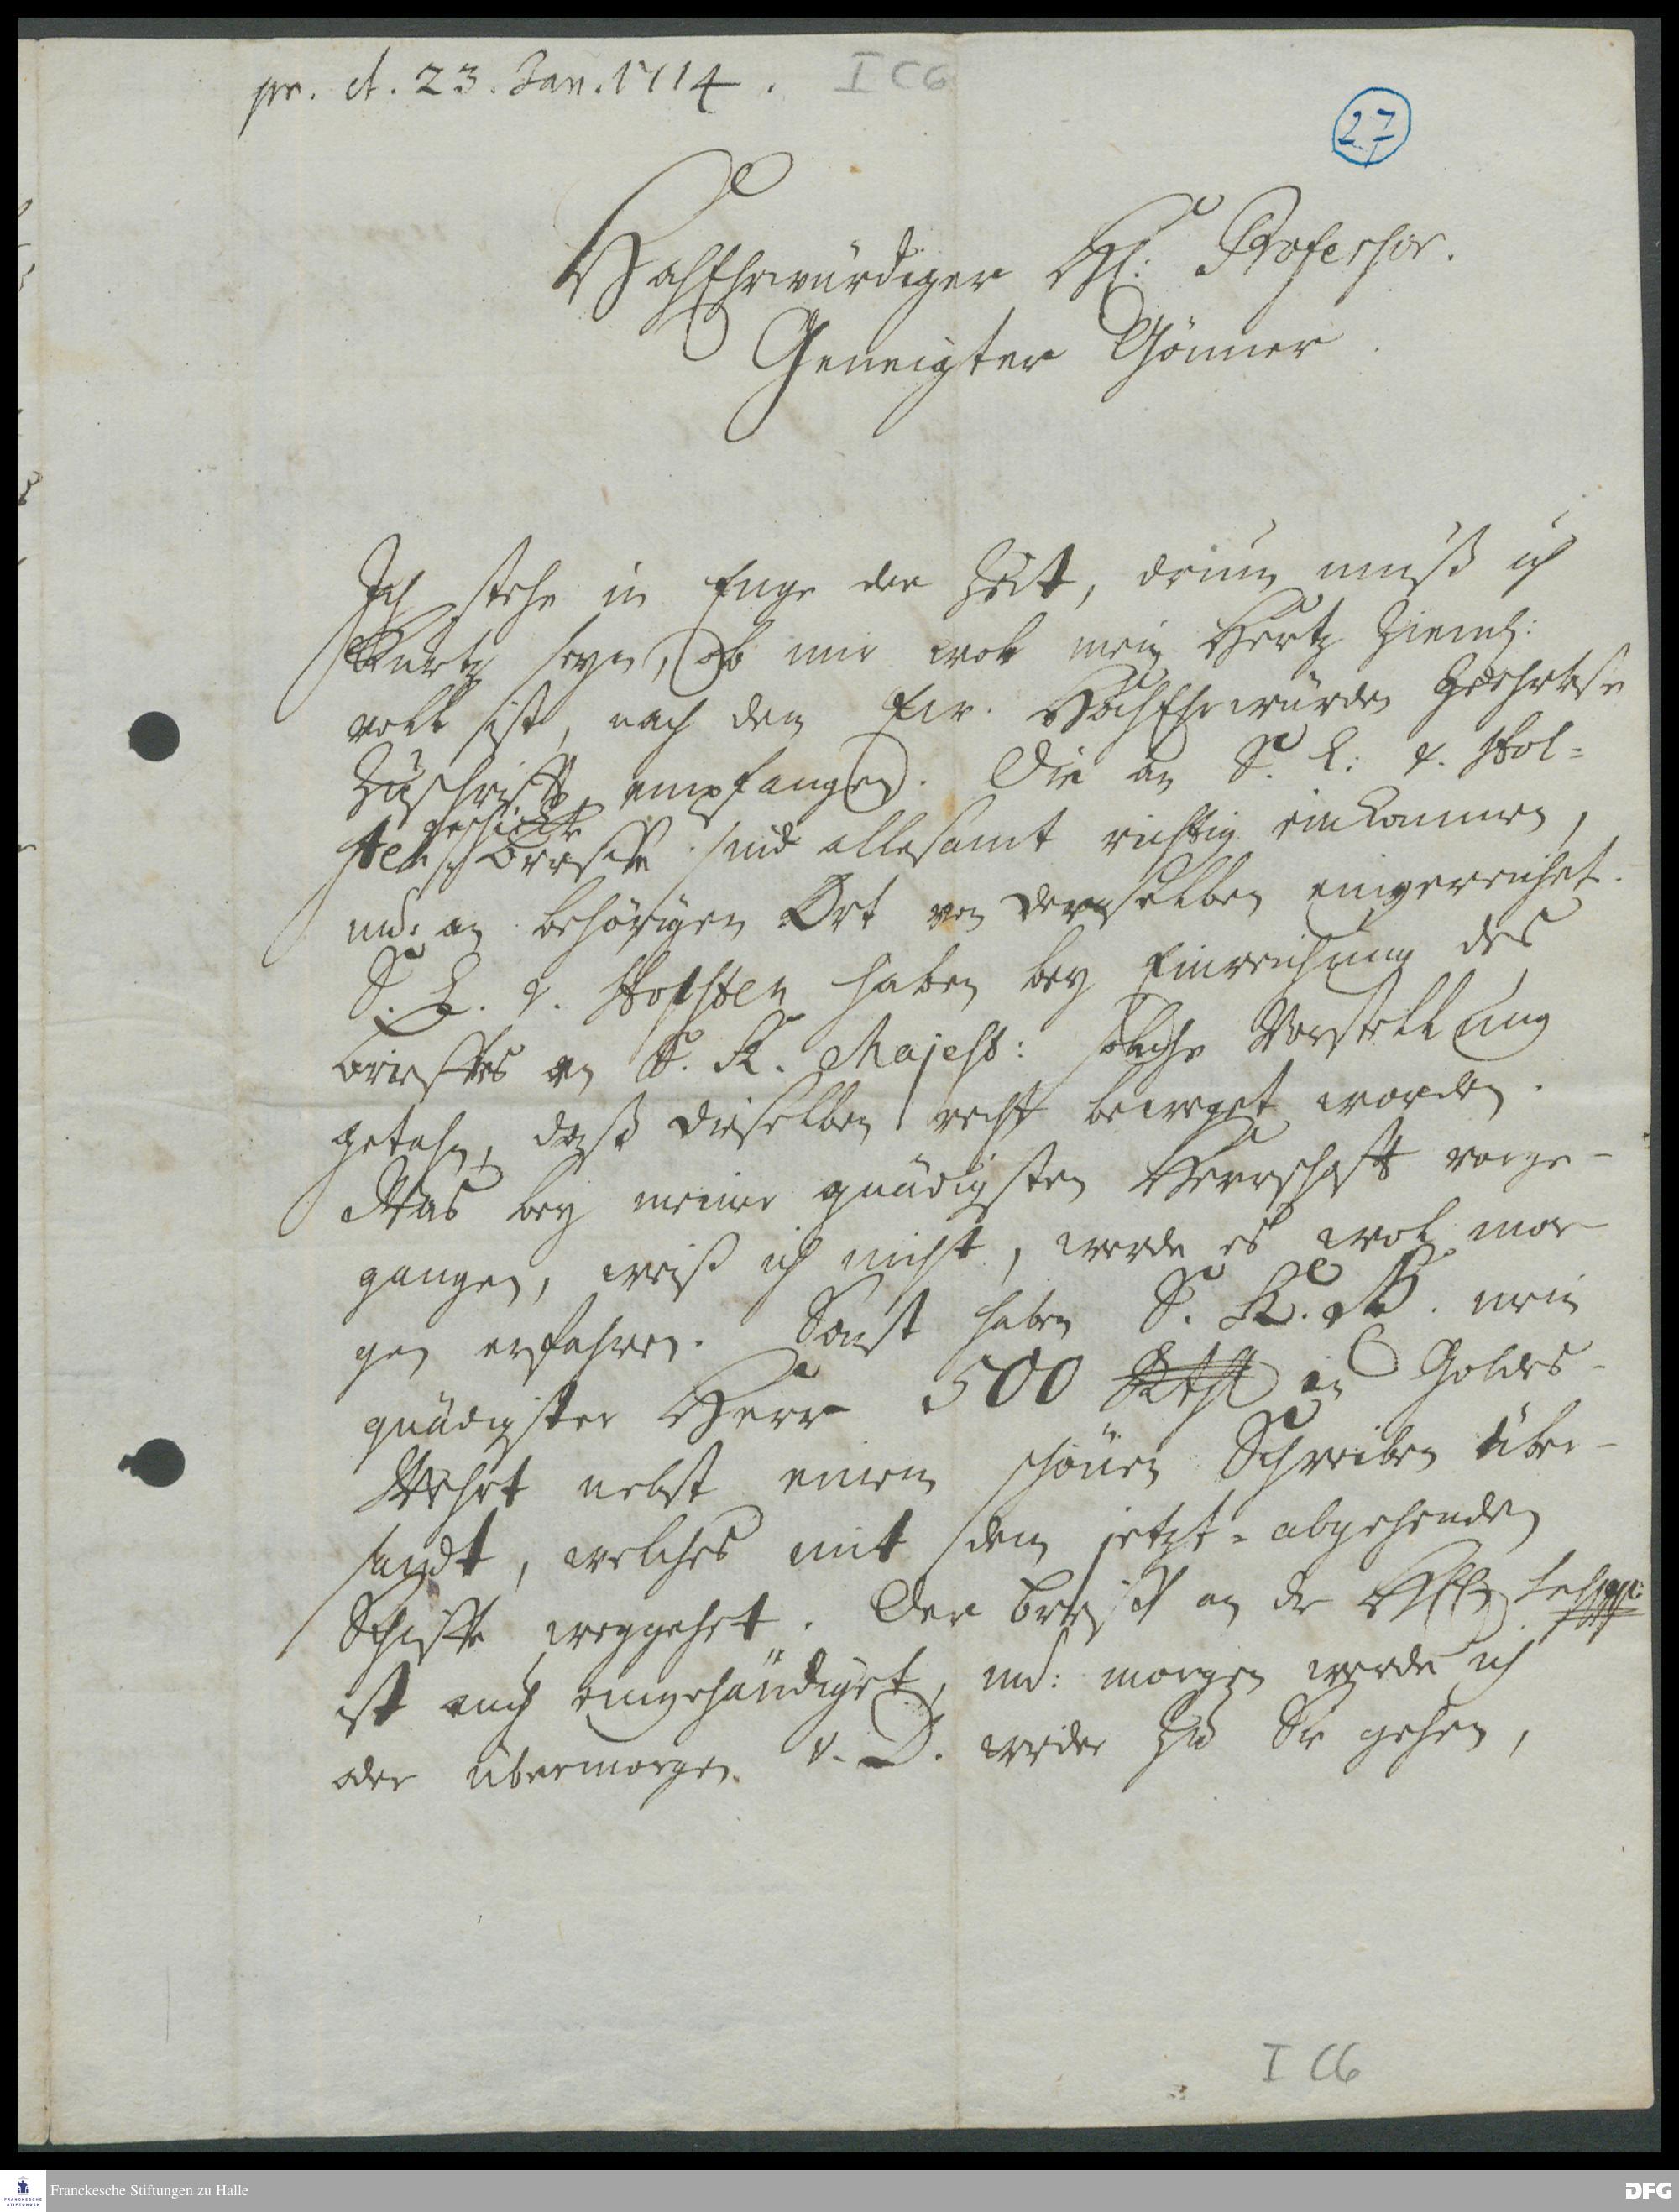 pr. d. 23. Jan. 1714. I C6
27
HochEhrwürdiger H: Professor.
Geneigter Gönner.
Ich stehe in Enge der Zeit, drum muß ich
Kurtz seyn, ob mir wol mein Hertz Zieml:
voll ist, nach dem Ew. HochEhrwürden Geehrteste
Zuschrifft empfangen. Die an S. E: v. Hol=
sten geschickte Brieffe sind allesamt richtig einkommen,
und: an behörigen Ort von demselben eingereichet.
S. E. v. Holsten haben bey Einreichung des
Brieffes an S. K. Majest: solche Vorstellung
getahn, daß dieselben recht beweget worden.
Was bey meiner gnädigsten Herrschafft vorge-
gangen, weiß ich nicht, werde es wol mor-
gen erfahren. Sonst haben S. K. M. mein
gnädigster Herr 500 Rthl in Goldes-
Wehrt nebst einem schönen Schreiben über-
sandt, welches mit dem jetzt=abgehenden
Schiffe weggehet. Der Brieff an die
ist auch eingehändiget, und: morgen werde ich
oder übermorgen v. D. wieder zu Sie gehen,
I C6
Franckesche Stiftungen zu Halle
DFG